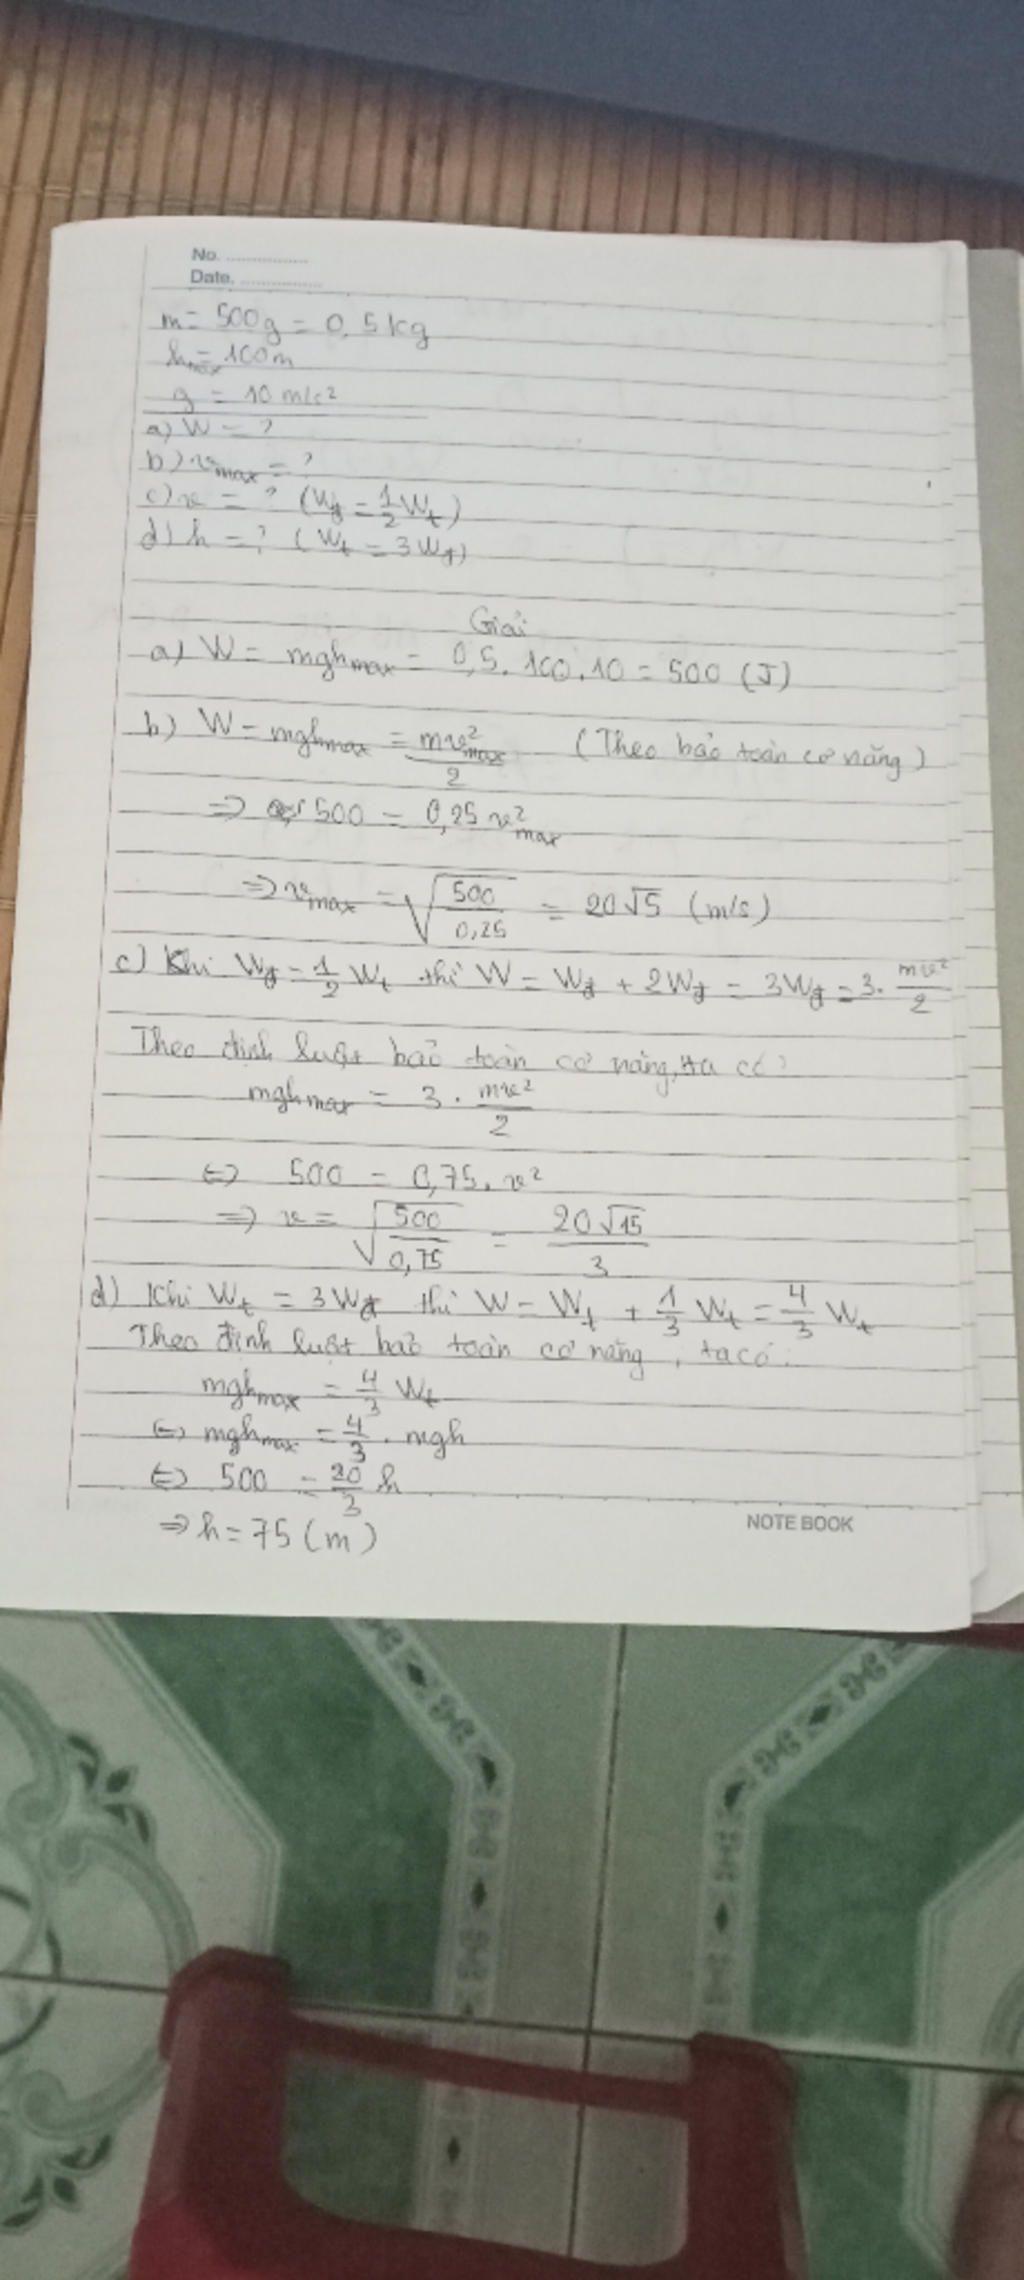 No. ................
Date. ................
m = 500g = 0,5kg
hmax = 100m
g = 10 m/s²
a) W = ?
b) vmax = ?
c) v = ? (Wđ = 1/2 Wt)
d) h = ? (Wt = 3Wđ)
Giải
a) W = mghmax = 0,5.100.10 = 500 (J)
b) W = mghmax = mv²max/2 (Theo bảo toàn cơ năng)
=> 500 = 0,25 v²max
=> vmax = √(500/0,25) = 20√5 (m/s)
c) Khi Wđ = 1/2 Wt thì W = Wđ + 2Wđ = 3Wđ = 3. mv²/2
Theo định luật bảo toàn cơ năng, ta có:
mghmax = 3 . mv²/2
<=> 500 = 0,75. v²
=> v = √(500/0,75) = 20√15/3
d) Khi Wt = 3Wđ thì W = Wt + 1/3 Wt = 4/3 Wt
Theo định luật bảo toàn cơ năng, ta có:
mghmax = 4/3 Wt
<=> mghmax = 4/3 . mgh
<=> 500 = 20/3 h
=> h = 75 (m)
NOTE BOOK